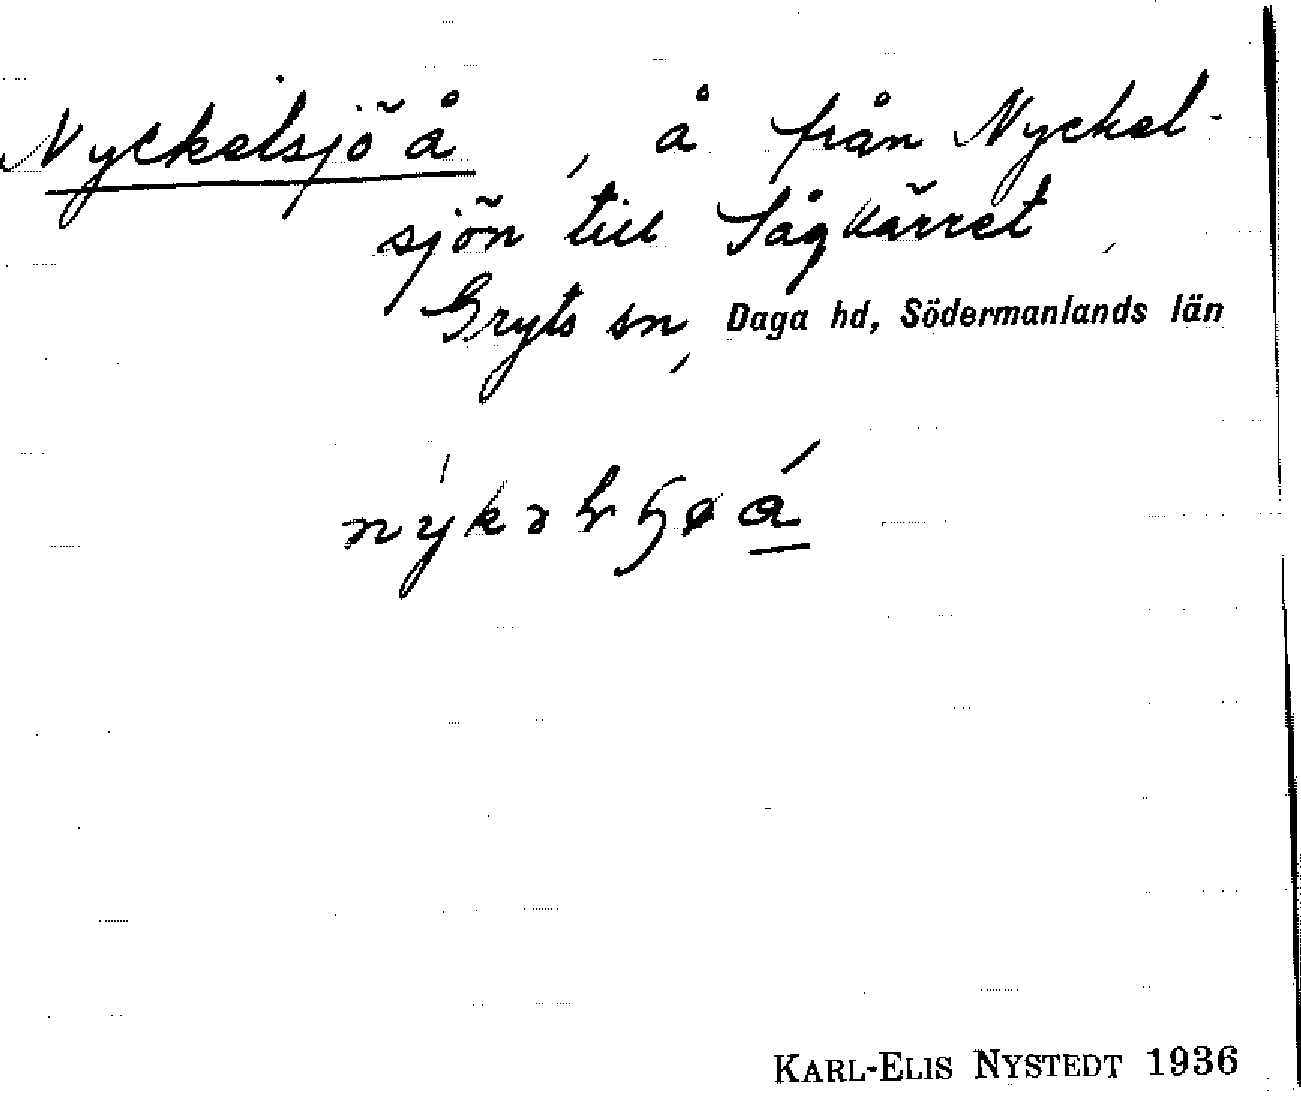 Nyckelsjöå, å från Nyckel-
sjön till Sågkärret,
Gryts sn, Daga hd, Södermanlands län
KARL-ELIS NYSTEDT 1936